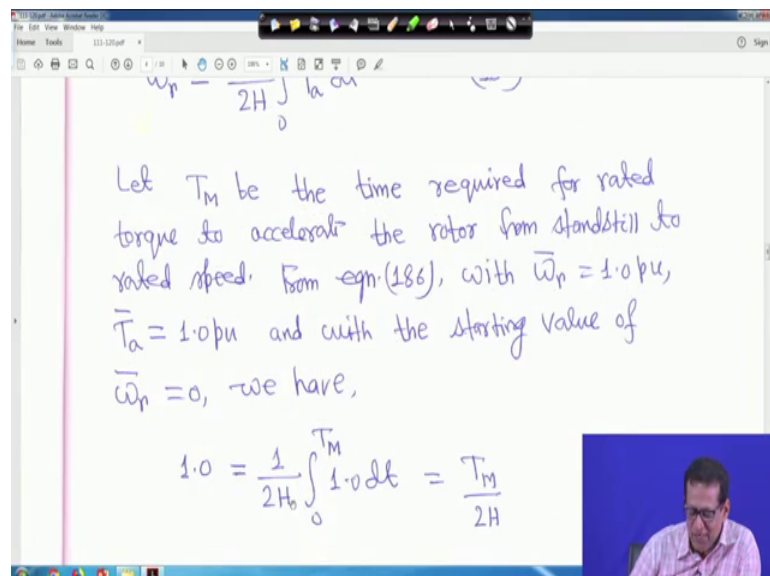 111-120.pdf - Adobe Acrobat Reader DC
File Edit View Window Help
Home Tools 111-120.pdf × Sign
ω̅r = 1/2H ∫0 T̅a dt
Let T_M be the time required for rated
torque to accelerate the rotor from standstill to
rated speed. From eqn.(186), with ω̅r = 1.0pu,
T̅a = 1.0pu and with the starting value of
ω̅r = 0, we have,
1.0 = 1/2H ∫0^T_M 1.0dt = T_M/2H